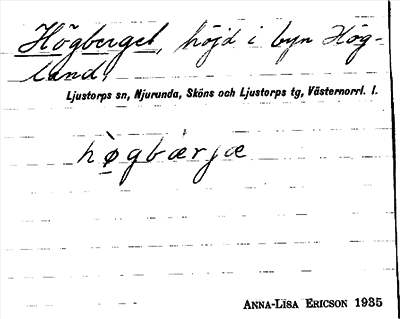 Högberget, höjd i byn Hög-
land,
Ljustorps sn, Njurunda, Sköns och Ljustorps tg, Västernorrl. l.
hø̀gbærjæ
ANNA-LISA ERICSON 1935